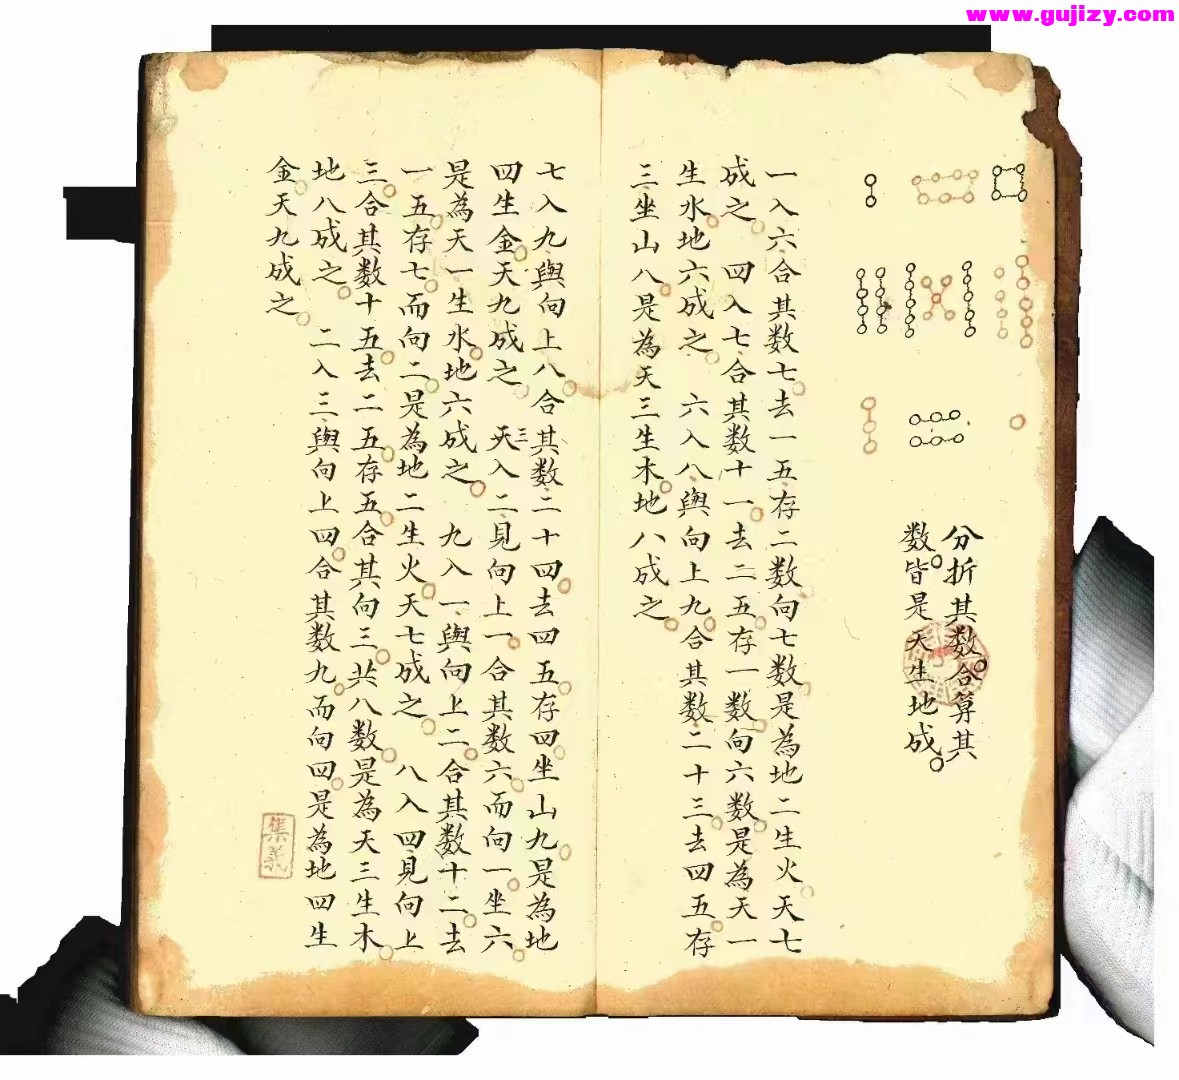 www.gujizy.com
分折其数合算其
数皆是天生地成
一入六合其数七去一五存二数向七数是為地二生火天七
成之 四入七合其数十一去二五存一数向六数是為天一
生水地六成之 六入八與向上九合其数二十三去四五存
三坐山八是為天三生木地八成之
七入九與向上八合其数二十四去四五存四坐山九是為地
四生金天九成之 天三入二見向上一合其数六而向一坐六
是為天一生水地六成之 九入一與向上二合其数十二去
一五存七而向二是為地二生火天七成之 八入四見向上
三合其数十五去二五存五合其向三共八数是為天三生木
地八成之 二入三與向上四合其数九而向四是為地四生
金天九成之
集義